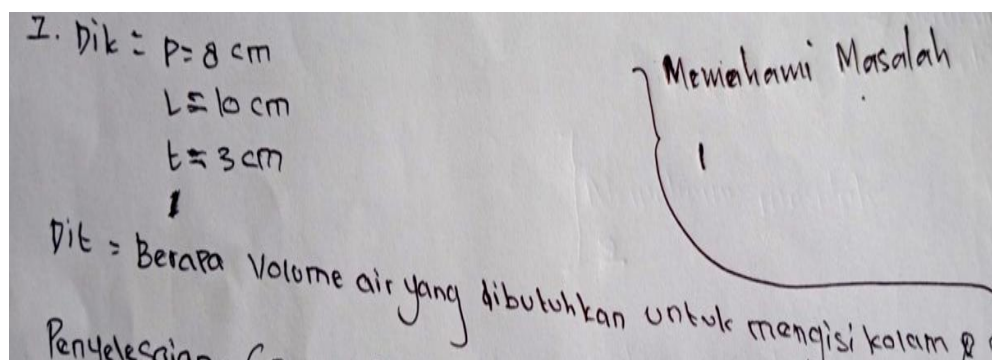 1. Dik = P= 8 cm
L = 10 cm
t = 3 cm
1
Memahami Masalah
1
Dit = Berapa Volume air yang dibutuhkan untuk mengisi kolam
Penyelesaian